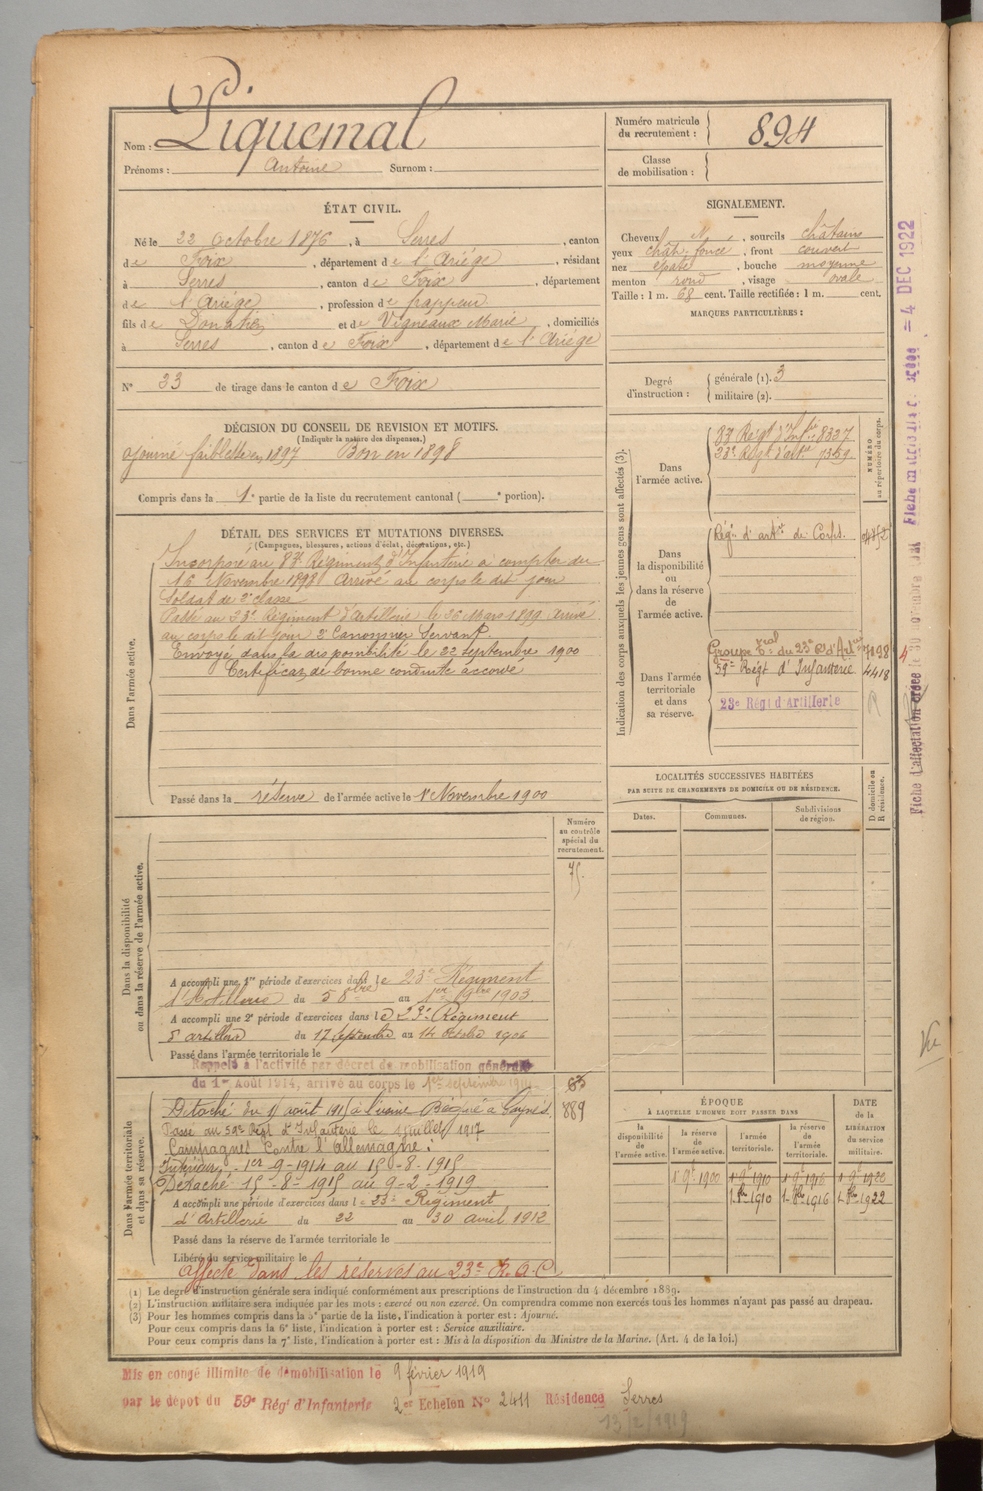 Nom : Piquemal
Prénoms : Antoine Surnom :
Numéro matricule du recrutement : 894
Classe de mobilisation :
ÉTAT CIVIL.
Né le 22 octobre 1876, à Serres, canton
de Foix, département de l'Ariége, résidant
à Serres, canton de Foix, département
de l'Ariége, profession de frappeur
fils de Donatien et de Vigneaux Marie, domiciliés
à Serres, canton de Foix, département de l'Ariége
N° 33 de tirage dans le canton de Foix
SIGNALEMENT.
Cheveux N, sourcils châtains
yeux chât. foncé, front couvert
nez épaté, bouche moyenne
menton rond, visage ovale
Taille : 1 m. 68 cent. Taille rectifiée : 1 m. cent.
MARQUES PARTICULIÈRES :
Degré d'instruction :
générale (1). 3
militaire (2).
DÉCISION DU CONSEIL DE REVISION ET MOTIFS.
(Indiquer la nature des dispenses.)
ajourné faiblesse en 1897 Bon en 1898
Compris dans la 1e partie de la liste du recrutement cantonal ( e portion).
DÉTAIL DES SERVICES ET MUTATIONS DIVERSES.
(Campagnes, blessures, actions d'éclat, décorations, etc.)
Dans l'armée active.
Incorporé au 83e Régiment d'Infanterie à compter du
16 Novembre 1898 Arrivé au corps le dit jour
Soldat de 2e classe
Passé au 23e Régiment d'Artillerie le 26 Mars 1899 Arrivé
au corps le dit jour 2e Canonnier Servant.
Envoyé dans la disponibilité le 22 septembre 1900
Certificat de bonne conduite accordé
Passé dans la réserve de l'armée active le 1er Novembre 1900
Indication des corps auxquels les jeunes gens sont affectés (3).
NUMÉRO au répertoire du corps.
Dans l'armée active.
83e Régt d'Infie 8337
23e Régt d'artie 7359
Dans la disponibilité ou dans la réserve de l'armée active.
Régt d'artie de
Dans l'armée territoriale et dans sa réserve.
Groupe du 23e Rt d'Artie
59e Régt d'Infanterie 4418
23e Régt d'Artillerie
LOCALITÉS SUCCESSIVES HABITÉES
PAR SUITE DE CHANGEMENTS DE DOMICILE OU DE RÉSIDENCE.
Dates. Communes. Subdivisions de région. D domicile ou R résidence.
Dans la disponibilité ou dans la réserve de l'armée active.
Numéro au contrôle spécial du recrutement.
75.
A accompli une 1re période d'exercices dans le 23e Régiment
d'Artillerie du 5 8bre au 1er 9bre 1903.
A accompli une 2e période d'exercices dans le 23e Régiment
d'artillerie du 17 septembre au 14 octobre 1906
Passé dans l'armée territoriale le
Rappelé à l'activité par décret de mobilisation générale
du 1er Août 1914, arrivé au corps le 1er septembre 1914
Dans l'armée territoriale et dans sa réserve.
63
889
Détaché du 15 août 1915 à l'usine
Passé au 59e Régt d'Infanterie le 1 juillet 1917
Campagnes Contre l'Allemagne :
Intérieur, 1er-9-1914 au 15-8-1915
Détaché 15-8-1915 au 9-2-1919
A accompli une période d'exercices dans le 23e Régiment
d'Artillerie du 22 au 30 avril 1912
Passé dans la réserve de l'armée territoriale le
Libéré du service militaire le
Affecté dans les réserves au 23e R.A.C.
ÉPOQUE
À LAQUELLE L'HOMME DOIT PASSER DANS
la disponibilité de l'armée active.
la réserve de l'armée active.
l'armée territoriale.
la réserve de l'armée territoriale.
DATE de la LIBÉRATION du service militaire.
1r 9e 1900 1r 9e 1910 1r 9e 1916 1r 9e 1922
1-8bre 1910 1-8bre 1916 1-8bre 1922
(1) Le degré d'instruction générale sera indiqué conformément aux prescriptions de l'instruction du 4 décembre 1889.
(2) L'instruction militaire sera indiquée par les mots : exercé ou non exercé. On comprendra comme non exercés tous les hommes n'ayant pas passé au drapeau.
(3) Pour les hommes compris dans la 5e partie de la liste, l'indication à porter est : Ajourné.
Pour ceux compris dans la 6e liste, l'indication à porter est : Service auxiliaire.
Pour ceux compris dans la 7e liste, l'indication à porter est : Mis à la disposition du Ministre de la Marine. (Art. 4 de la loi.)
Mis en congé illimité de démobilisation le 9 février 1919
par le dépôt du 59e Régt d'Infanterie 2er Echelon N° 2411 Résidence Serres
13/2/1919
Fiche d'affectation créée le 30 novembre
= 4 DEC 1922
Vu